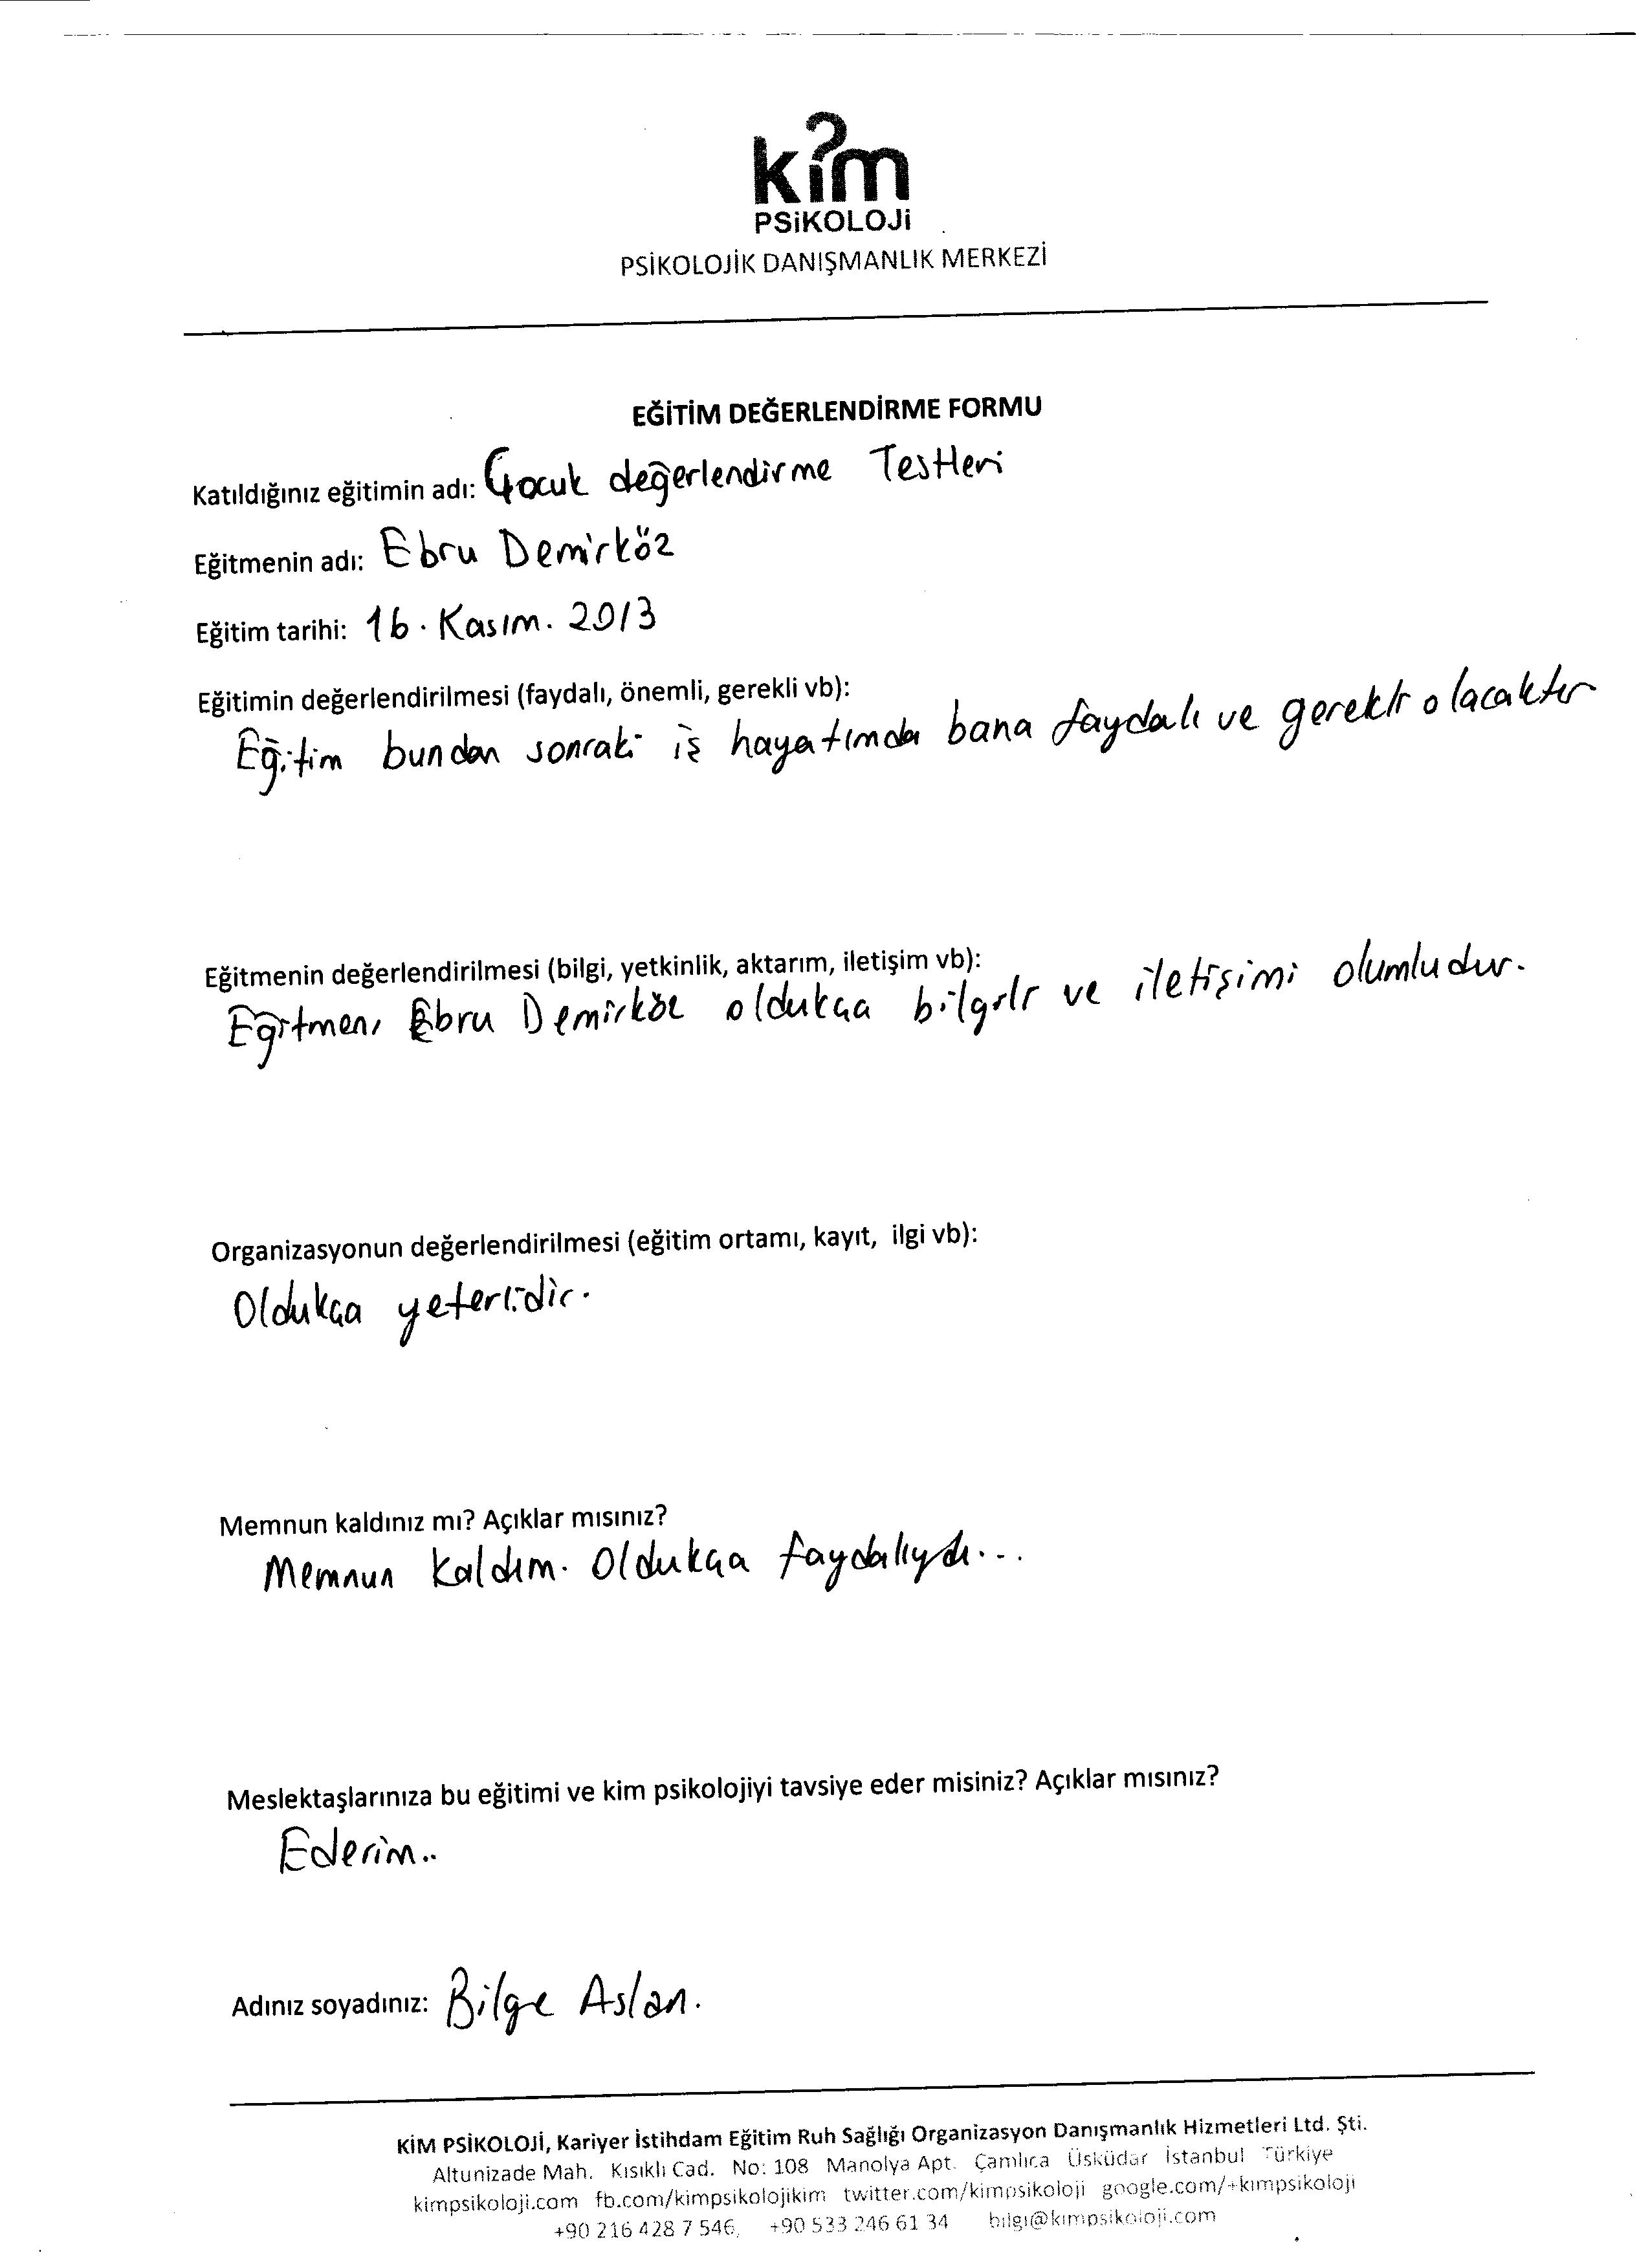 kim
PSiKOLOJi
PSİKOLOJİK DANIŞMANLIK MERKEZİ
EĞİTİM DEĞERLENDİRME FORMU
Katıldığınız eğitimin adı: Çocuk değerlendirme Testleri
Eğitmenin adı: Ebru Demirköz
Eğitim tarihi: 16. Kasım. 2013
Eğitimin değerlendirilmesi (faydalı, önemli, gerekli vb):
Eğitim bundan sonraki iş hayatımda bana faydalı ve gerekli olacaktır
Eğitmenin değerlendirilmesi (bilgi, yetkinlik, aktarım, iletişim vb):
Eğitmeni Ebru Demirköz oldukça bilgili ve iletişimi olumludur.
Organizasyonun değerlendirilmesi (eğitim ortamı, kayıt, ilgi vb):
Oldukça yeterlidir.
Memnun kaldınız mı? Açıklar mısınız?
Memnun kaldım. Oldukça faydalıydı...
Meslektaşlarınıza bu eğitimi ve kim psikolojiyi tavsiye eder misiniz? Açıklar mısınız?
Ederim..
Adınız soyadınız: Bilge Aslan.
KİM PSİKOLOJİ, Kariyer İstihdam Eğitim Ruh Sağlığı Organizasyon Danışmanlık Hizmetleri Ltd. Şti.
Altunizade Mah. Kısıklı Cad. No: 108 Manolya Apt. Çamlıca Üsküdar İstanbul Türkiye
kimpsikoloji.com fb.com/kimpsikolojikim twitter.com/kimpsikoloji google.com/+kimpsikoloji
+90 216 428 7 546, +90 533 246 61 34 bilgi@kimpsikoloji.com